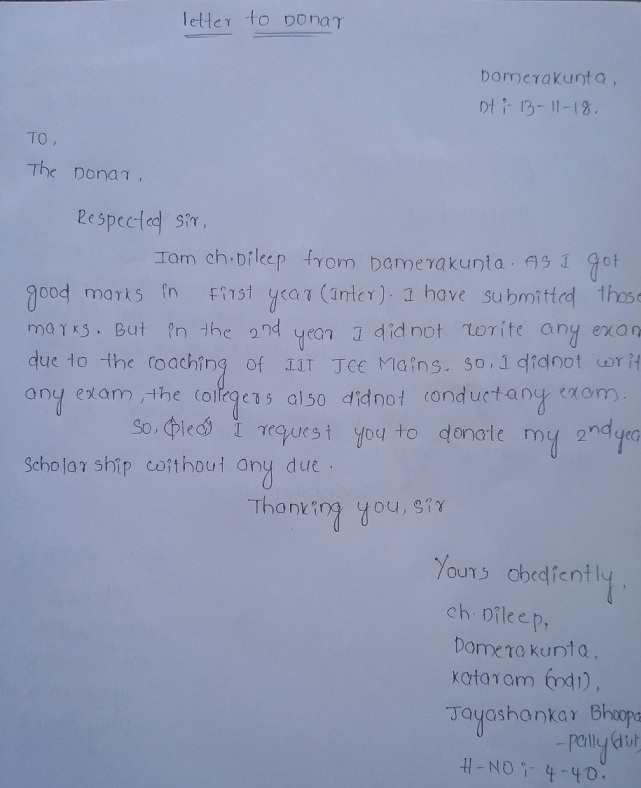 letter to Donar
Damerakunta,
Dt :- 13-11-18.
TO,
The Donar,
Respected sir,
Iam ch.Dileep from Damerakunta. As I got
good marks in First year (Inter). I have submitted those
marks. But in the 2nd year I didnot write any exam
due to the coaching of IIT JEE Mains. so, I didnot writ
any exam, the collegers also didnot conduct any exam.
So, I request you to donate my 2nd yea
Scholarship without any due.
Thanking you, sir
Yours obediently,
ch.Dileep,
Damerakunta,
kataram (mdl),
Jayashankar Bhoopa
-pally (dist)
H-NO :- 4-40.